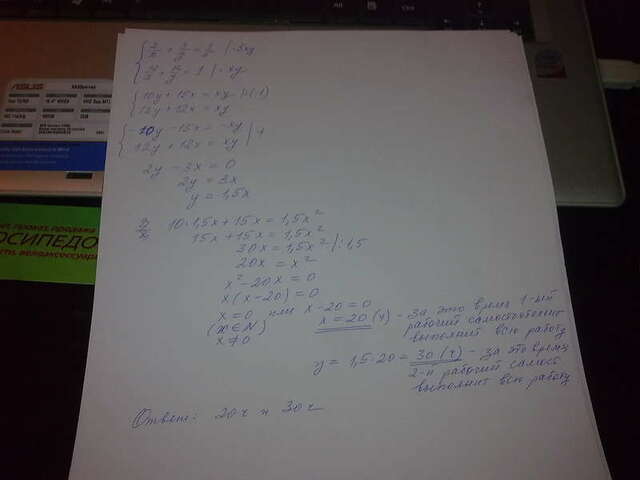 { 2/x + 3/y = 1/5 | ·5xy
12/x + 12/y = 1 | ·xy
{ 10y + 15x = xy | ·(-1)
12y + 12x = xy
{ -10y - 15x = -xy | +
12y + 12x = xy
2y - 3x = 0
2y = 3x
y = 1,5x
10·1,5x + 15x = 1,5x²
15x + 15x = 1,5x²
30x = 1,5x² | :1,5
20x = x²
x² - 20x = 0
x(x - 20) = 0
x = 0 или x - 20 = 0
(x ∈ N) x = 20 (ч) - За это время 1-ый
x ≠ 0 рабочий самостоятельно
выполнит всю работу
y = 1,5·20 = 30 (ч) - за это время
2-й рабочий самост.
выполнит всю работу
Ответ: 20ч и 30ч
ASUS